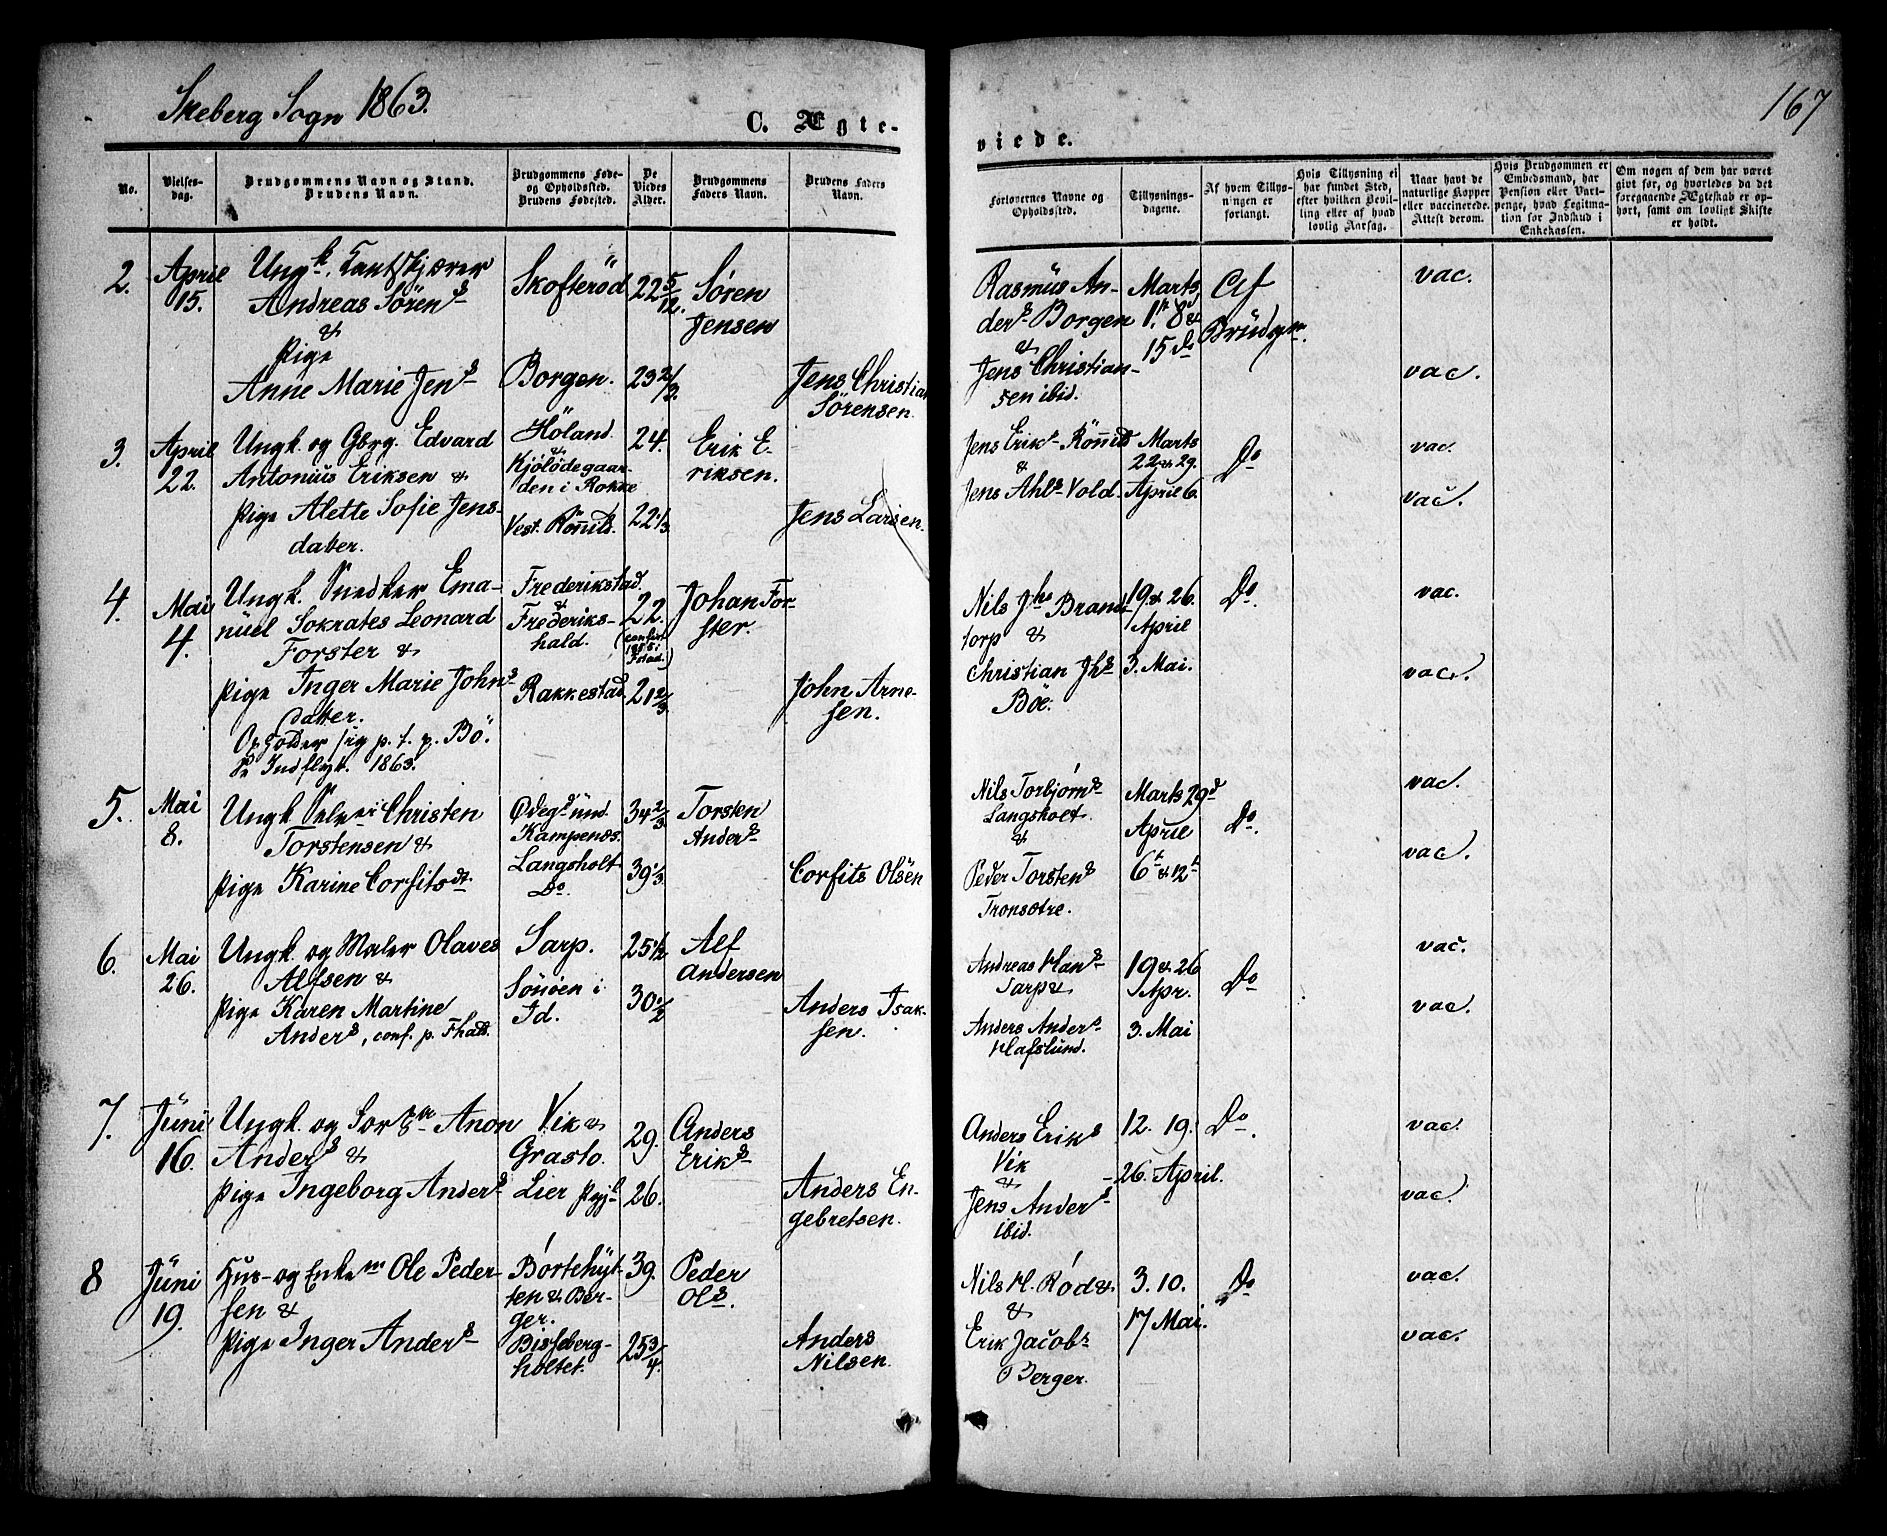 Skeberg Sogn 1863.
167
C. Ægte-
viede.
No.
Vielses-
dag.
Brudgommens Navn og Stand.
Brudens Navn.
Brudgommens Føde-
og Opholdsted.
Brudens Fødested.
De
Viedes
Alder.
Brudgommens
Faders Navn.
Brudens Faders
Navn.
Forlovernes Navne og
Opholdssted.
Tillysnings-
dagene.
Af hvem Tillys-
ningen er
forlangt.
Hvis Tillysning ei
har fundet Sted,
efter hvilken Bevil-
ling eller af hvad
lovlig Aarsag.
Naar havt de
naturlige Kopper
eller vaccinerede.
Attest derom.
Hvis Brudgommen er
Embedsmand, har
Pension eller Vart-
penge, hvad Legitima-
tion for Indskud i
Enkekassen.
Om nogen af dem har været
givt før, og hvorledes da det
foregaaende Ægteskab er op-
hørt, samt om lovligt Skifte
er holdt.
2.
April
15.
Ungk.
Andreas Sörens
&
Pige
Anne Marie Jens
Skofteröd
Borgen.
22 5/12
23 2/3
Sören
Jensen
Jens Christian
Sørensen.
Rasmus An-
ders Borgen
&
Jens Christian-
sen ibid.
Marts
1. 8 &
15 do
Af
Brudgm.
vac.
vac.
3.
April
22.
Ungk. og Gbrg. Edvard
Antonius Eriksen &
Pige Alette Sofie Jens-
datter.
Höland
&
Kjölödegaar-
den i Rokke
Vest.
24.
22 1/3
Erik E-
riksen.
Jens Larsen.
Jens Eriks
&
Jens Ahls Vold.
Marts
22 & 29.
April 6.
Do
vac.
vac.
4.
Mai
4.
Ungk. Snedker Ema-
nuel Sokrates Leonard
Forster &
Pige Inger Marie Johns
datter.
Opholder sig p. t. p. Bö.
Indflyt. 1863.
Frederikstad.
&
Frederiks-
hald.
Rakkestad
22.
(confirt
1855 i
Fstad.)
21 2/3
Johan For-
ster.
John Arne-
sen.
Nils Jhs Brand-
torp &
Christian Jhs
Böe.
19. & 26.
April
3. Mai.
Do.
vac.
vac.
5.
Mai
8.
Ungk. Christen
Torstensen &
Pige Karine Corfitsdt.
Ødegd und.
Kampenæs.
Langsholt
Do.
34 2/3
39 1/3
Torsten
Anders
Corfits Olsen
Nils Torbjørns
Langsholt.
&
Peder Torstens
Tronsætre.
Marts 29d
April
6t & 12t
Do.
vac.
vac.
6.
Mai
26.
Ungk. og Maler Olaves
Alfsen &
Pige Karen Martine
Anders, conf. p. Fhald.
Sarp.
i
Id.
25 1/2
30 1/2
Alf
Andersen
Anders Isak-
sen.
Andreas Hans
Sarp &
Anders Anders
Hafslund.
19 & 26
Apr.
3. Mai
Do
vac.
vac.
7.
Juni
16.
Ungk. og Anon
Anders &
Pige Ingeborg Anders
Vik &
Grasto.
Lier
29.
26.
Anders
Eriks
Anders En-
gebretsen.
Anders Eriks
Vik
&
Jens Anders
ibid.
12. 19.
26. April.
Do.
vac.
vac.
8
Juni
19.
Hus- og Enkem Ole Peder-
sen &
Pige Inger Anders
Börtehyt-
ten & Ber-
ger.
Bisseberg-
holtet.
39.
25 3/4.
Peder
Ols.
Anders
Nilsen.
Nils H. Röd &
&
Erik Jacobs
Berger.
3. 10.
17 Mai.
Do
vac.
vac.